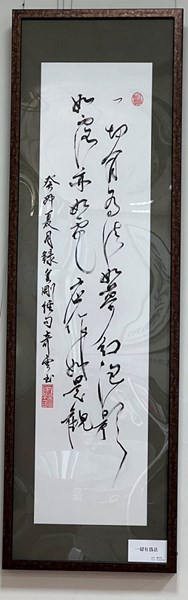 一切有為法如夢幻泡影
如露亦如電應作如是觀
癸卯夏月錄金剛經句
一切有為法